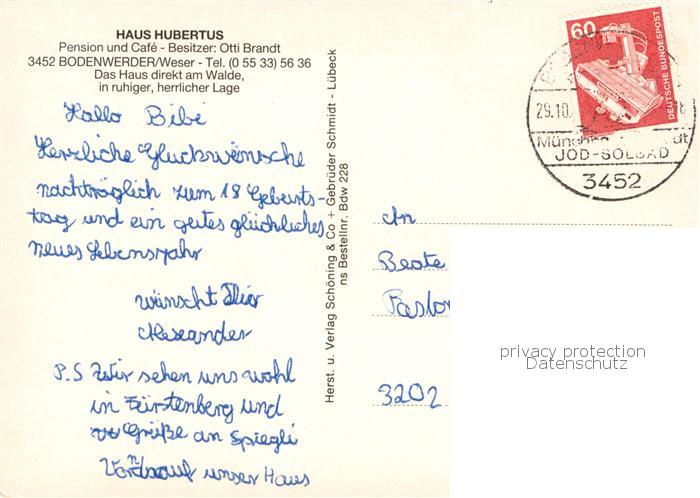 HAUS HUBERTUS
Pension und Café - Besitzer: Otti Brandt
3452 BODENWERDER/Weser - Tel. (0 55 33) 56 36
Das Haus direkt am Walde,
in ruhiger, herrlicher Lage
Hallo Bibi
Herzliche Glückwünsche
nachträglich zum 18 Geburts-
tag und ein gutes glückliches
neues Lebensjahr
wünscht Dir
Alexander
P.S Wir sehen uns wohl
in Fürstenberg und
Grüße an Spiegli
unser Haus
Herst. u. Verlag Schöning & Co + Gebrüder Schmidt - Lübeck
ns Bestellnr. Bdw 228
60
DEUTSCHE BUNDESPOST
29.10.
Münch
JOD-SOLBAD
3452
An
Beate
Pastor
3202
privacy protection
Datenschutz